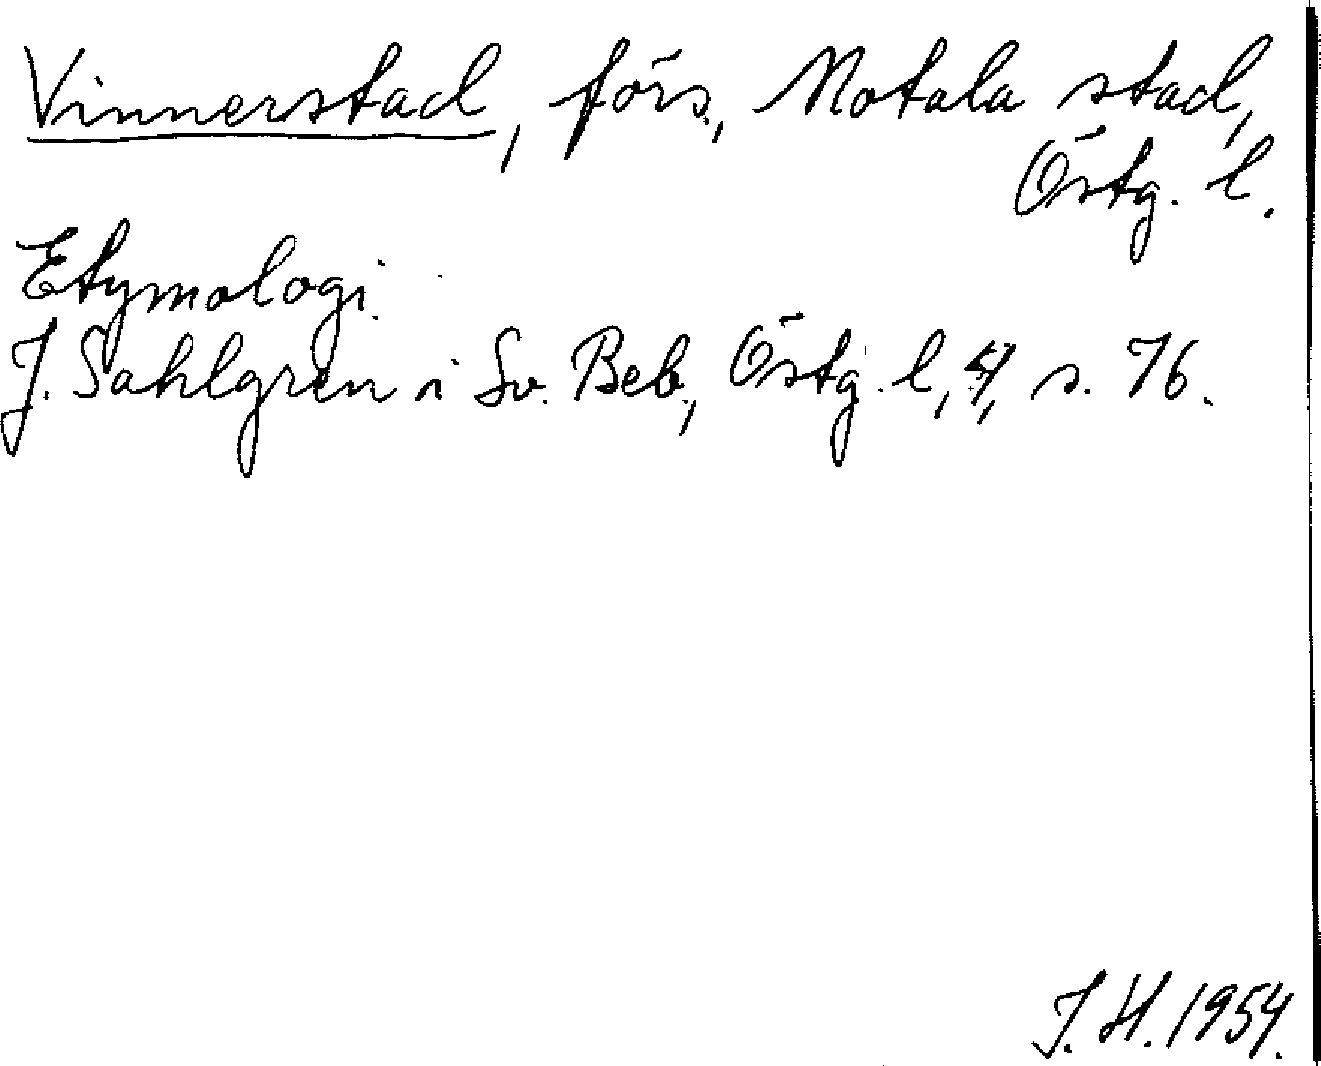 Vinnerstad, förs., Motala stad,
Östg. l.
Etymologi.
J. Sahlgren i Sv. Beb., Östg. l, 4, s. 76.
J. H. 1954.